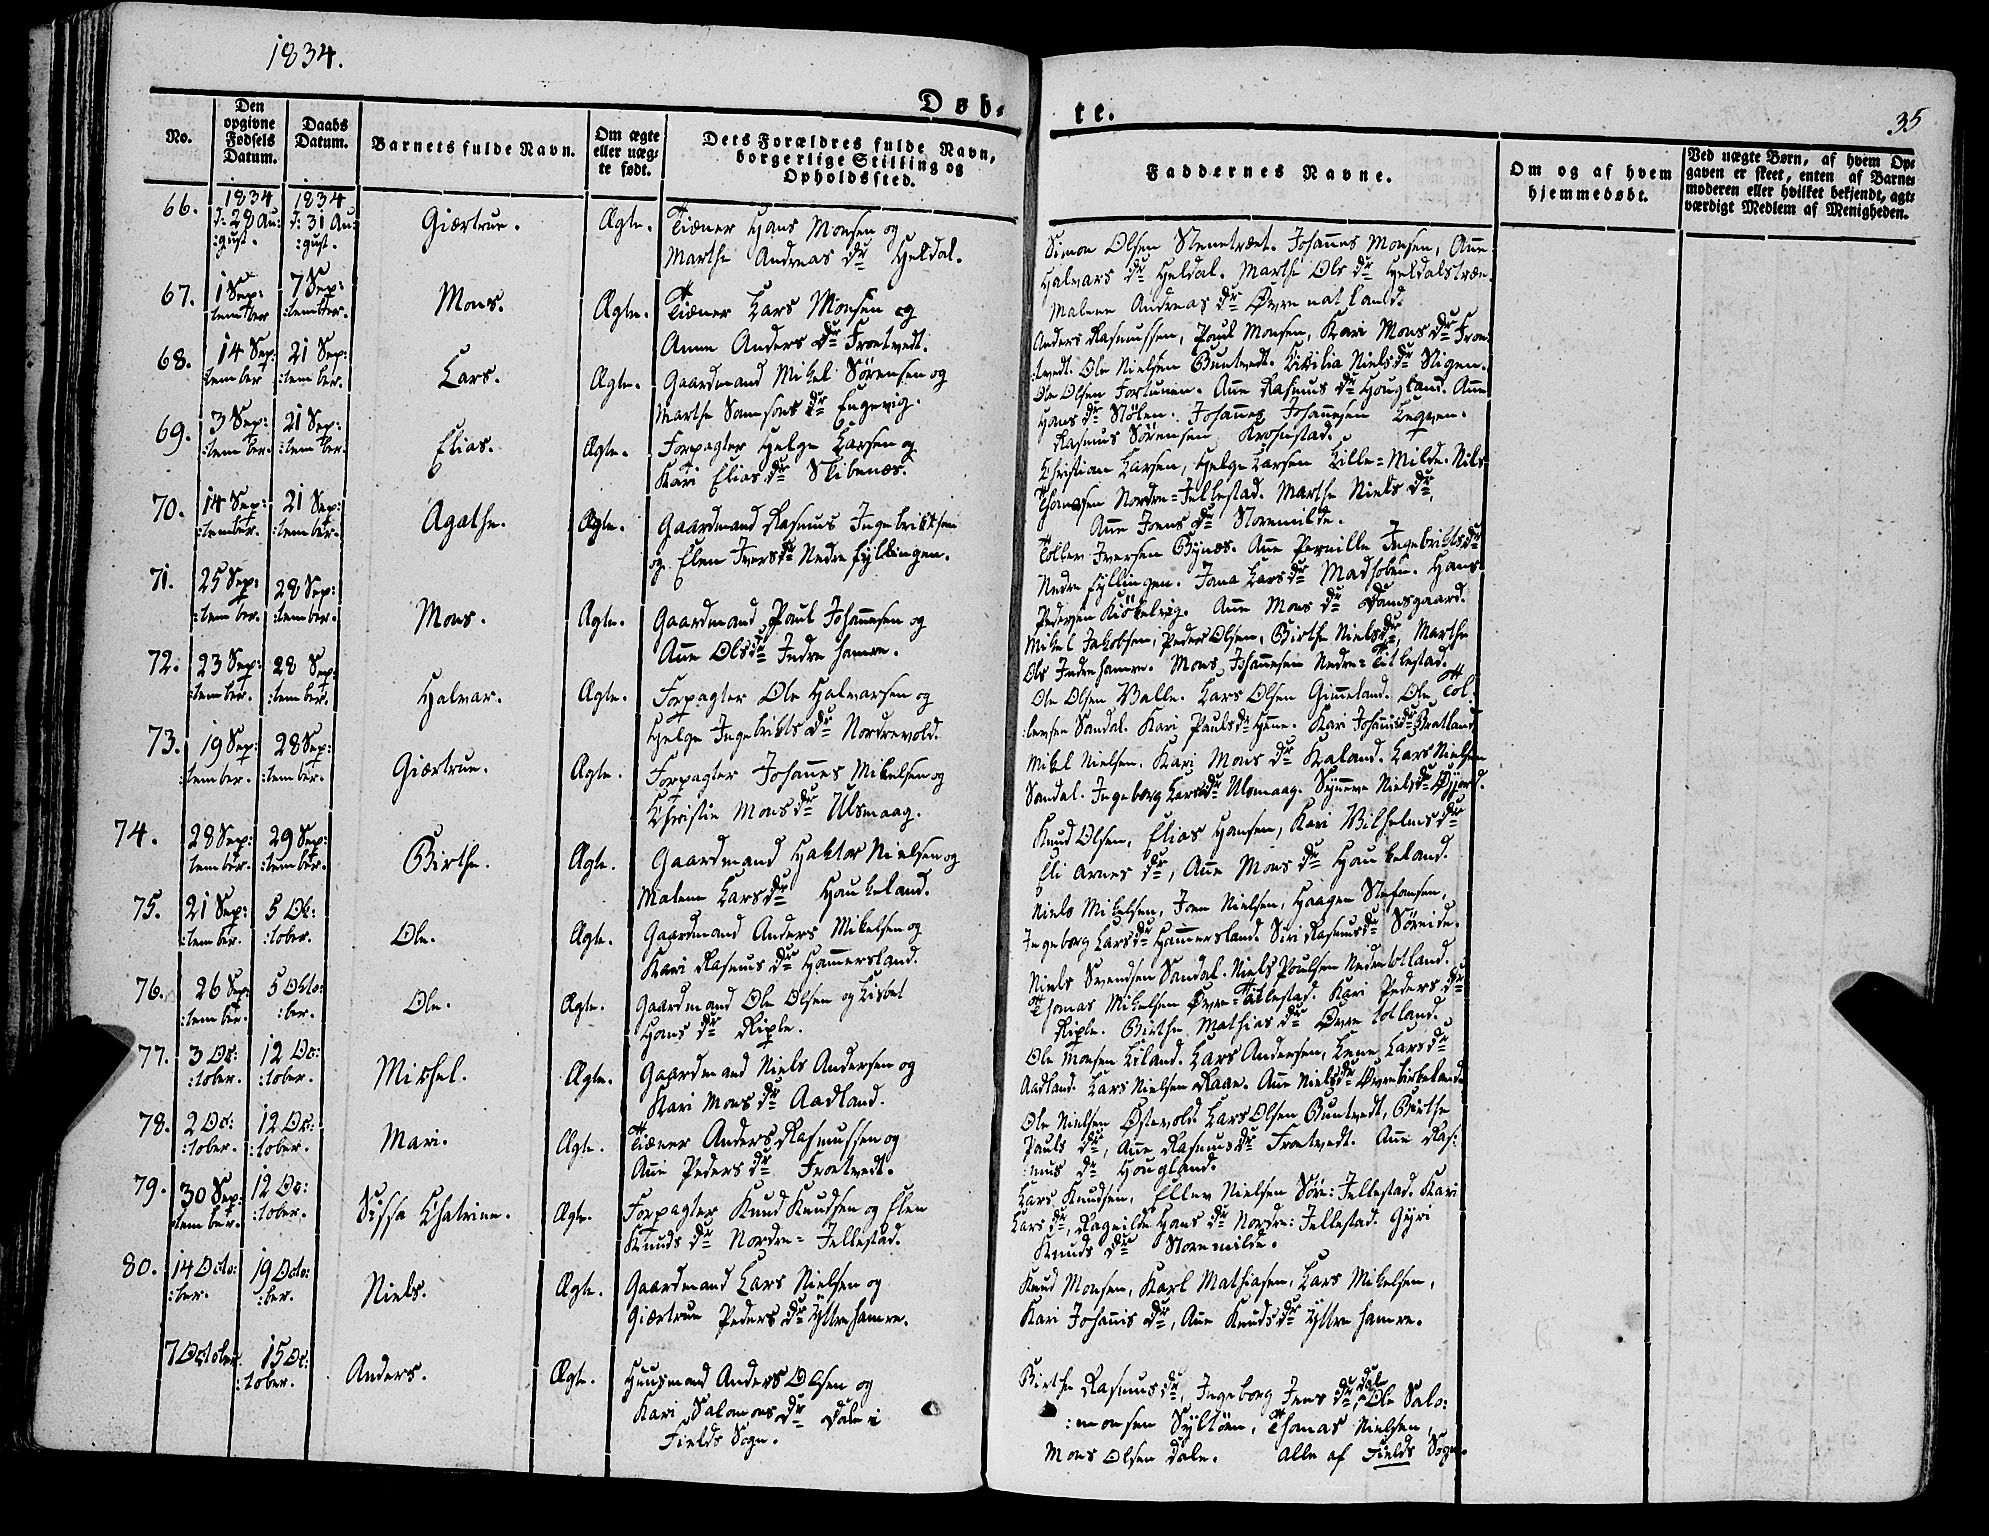 1834.
Døb-
te.
35
No.
Den opgivne Fødsels Datum.
Daabs Datum.
Barnets fulde Navn.
Om ægte eller uæg-
te født.
Dets Forældres fulde Navn,
borgerlige Stilling og
Opholdssted.
Faddernes Navne.
Om og af hvem
hjemmedøbt.
Ved uægte Børn, af hvem Op-
gaven er skeet, enten af Barne-
moderen eller hvilket bekjendt, agt-
værdigt Medlem af Menigheden.
66. 1834 d: 29 Au: :gust. 1834 d: 31 Au: :gust. Giertrue. Ægte. Tiener Hans Monsen og
Marthe Andreas dr Heldal.
Simon Olsen Steentræet. Johannes Monsen, Ane
Halvars dr Heldal. Marthe Ols dr Heldalstræe
Malene Andreas dr Øvre natland.
67. 1 Sep: tember 7 Sep: :tember. Mons. Ægte. Tiener Lars Monsen og
Anne Anders dr Frotvedt.
Anders Rasmussen, Paul Monsen, Kari Mons dr Frot
:tvedt. Ole Nielsen Buntvedt. Sikilia Niels dr Stigen.
68. 14 Sep: tember 21 Sep: :tember. Lars. Ægte. Gaardmand Mikel Sörensen og
Marthe Samsons dr Engevig.
Ole Olsen Fortunen. Ane Rasmus dr Hougland. Ane
Hans dr Stölen. Johannes Johannesen
Rasmus Sörensen Krohnstad.
69. 3 Sep: :tember. 21 Sep: :tember. Elias. Ægte. Forpagter Helge Larsen og
Kari Elias dr Skibenes.
Christian Larsen, Helge Larsen Lille=Milde. Nils
Thomsen Nordre=Jellestad. Marthe Niels dr,
Ane Joens dr Storemilde.
70. 14 Sep: :tember. 21 Sep: :tember. Agathe. Ægte. Gaardmand Rasmus Ingebriktsen
og Elen Ivers dr Nedre fyllingen.
Tollev Iversen Bynæs. Ane Pernille Ingebrikts dr
Nedre fyllingen. Jana Lars dr Madhoben. Hans
Pedersen Kiökelvig. Ane Mons dr Damsgaard.
71. 25 Sep: :tember. 28 Sep: :tember. Mons. Ægte. Gaardmand Paul Johannesen og
Ane Ols dr Indre hamre.
Mikel Jakobsen, Peder Olsen, Birthe Niels dr, Marthe
Ols Indre hamre. Mons Johannesen Nedre=Titlestad.
72. 23 Sep: :tember. 28 Sep: :tember. Halvar. Ægte. Forpagter Ole Halvarsen og
Helge Ingebrikts dr Nordrevold.
Ole Olsen Valle. Lars Olsen Gimeland. Ole Tol:
levsen Sandal. Kari Pauls dr Hene. Kari Johannis dr Bratland
73. 19 Sep: :tember. 28 Sep: :tember. Giertrue. Ægte. Forpagter Johannes Mikelsen og
Christie Mons dr Ulsmaag.
Mikel Nielsen, Kari Mons dr Kaland. Lars Nielsen
Sandal. Ingeborg Lars dr Ulsmaag. Syneve Niels dr Øyjord.
74. 28 Sep: tember. 29 Sep: :tember. Birthe. Ægte. Gaardmand Haktor Nielsen og
Malene Lars dr Haukeland.
Knud Olsen, Elias Hansen, Kari Vilhelms dr
Eli Arnes dr, Ane Mons dr Haukeland.
75. 21 Sep: :tember. 5 Ok: :tober. Ole. Ægte. Gaardmand Anders Mikelsen og
Kari Rasmus dr Hamersland.
Niels Mikelsen, Joen Nielsen, Haagen Stefansen,
Ingeborg Lars dr Hamersland. Siri Rasmus dr Söreide.
76. 26 Sep: :tember. 5 Okto: :ber. Ole. Ægte. Gaardmand Ole Olsen og Lisbet
Hans dr Riple.
Niels Svendsen Sandal. Niels Poulsen Nedre totland.
Thomas Mikelsen Øvre=Titlestad. Kari Peders dr
Riple. Birthe Mathias dr Øvre totland.
77. 3 Oc: :tober. 12 Oc: :tober. Mikhel. Ægte. Gaardmand Niels Andersen og
Kari Mons dr Aadland.
Ole Monsen Liland. Lars Andersen, Lene Lars dr
Aadland. Lars Nielsen Raae. Ane Niels dr Øvre birkeland.
78. 2 Oc: :tober. 12 Oc: :tober. Mari. Ægte. Tiener Anders Rasmussen og
Ane Peders dr Frotvedt.
Ole Nielsen Østevold. Lars Olsen Buntvedt, Birthe
Pauls dr, Ane Rasmus dr Frotvedt. Ane Ras:
:mus dr Hougland.
79. 30 Sep: :tember. 12 Oc: :tober. Sissa Chatrine. Ægte. Forpagter Knud Knudsen og Elen
Knuds dr Nordre= Jellestad.
Lars Knudsen, Ellev Nielsen Söre: Jellestad. Kari
Lars dr, Ragnilde Hans dr Nordre: Jellestad. Gyri
Knuds dr Storemilde.
80. 14 Octo: :ber. 19 Octo: :ber. Niels. Ægte. Gaardmand Lars Nielsen og
Giertrue Peders dr Yttre hamre.
Knud Monsen, Karl Mathiasen, Lars Mikelsen,
Kari Johannis dr, Ane Knuds dr Yttre hamre.
7 October. 15 Oc: :tober. Anders. Ægte. Huusmand Anders Olsen og
Kari Salomons dr Dale i
Fields Sogn.
Birthe Rasmus dr, Ingeborg Jens dr Dal, Ole Salo:
:monsen Syltöen, Thomas Nielsen,
Mons Olsen Dale. Alle af Fields Sogn.